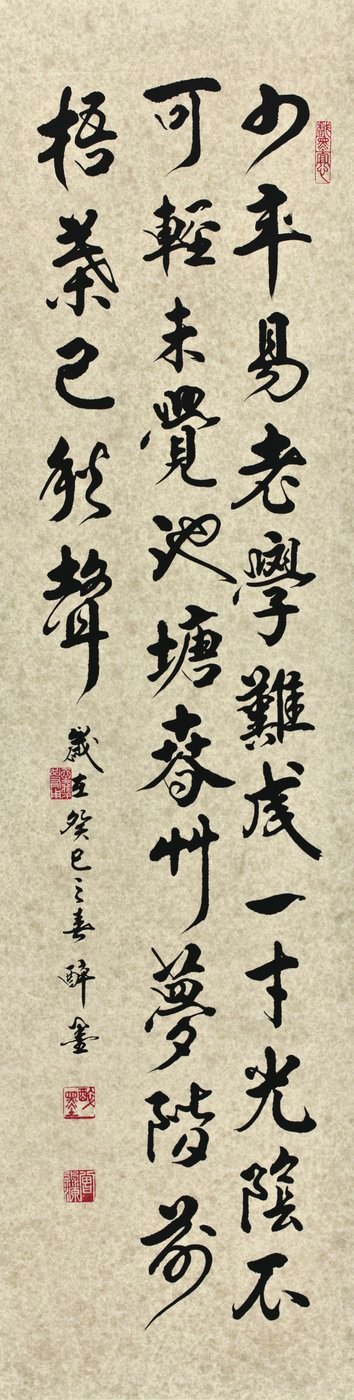 少年易老學難成一寸光陰不
可輕未覺池塘春艸夢階前
梧葉已秋聲
歲在癸巳之春醉墨